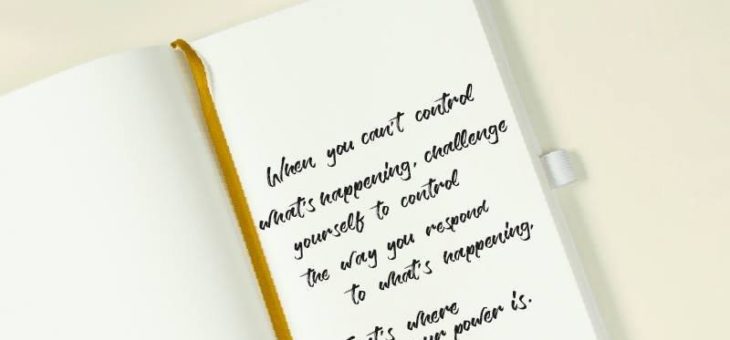 When you can't control
what's happening, challenge
yourself to control
the way you respond
to what's happening.
where
power is.